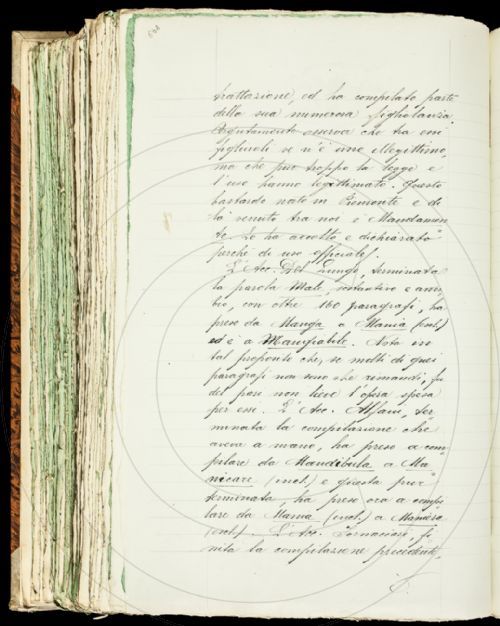 trattazione, ed ha compilato parte
della sua numerosa figliolanza.
Argutamente osserva che tra essi
figliuoli se n'è uno illegittimo,
ma che pur troppo la legge e
l'uso hanno legittimato. Questo
bastardo nato in Piemonte e di
là venuto tra noi è Mandamen-
to. Lo ha accolto e dichiarato
perchè di uso officiale.
L'Acc. Del Lungo, terminata
la parola Male, sostantivo e avver-
bio, con oltre 160 paragrafi, ha
preso da Manga a Mania (incl.)
ed è a Mangiabile. Nota a
tal proposito che, se molti di quei
paragrafi non sono che rimandi, fu
del pari non lieve l'opera spesa
per essi. L'Acc. Alfani, ter-
minata la compilazione che
aveva a mano, ha preso a com-
pilare da Mandibula a Ma-
nicare (incl.) e questa pur
terminata, ha preso ora a compi-
lare da Mania (incl.) a Maniera
(incl.). L'Acc. Tornaciosi, fi-
nita la compilazione precedente,